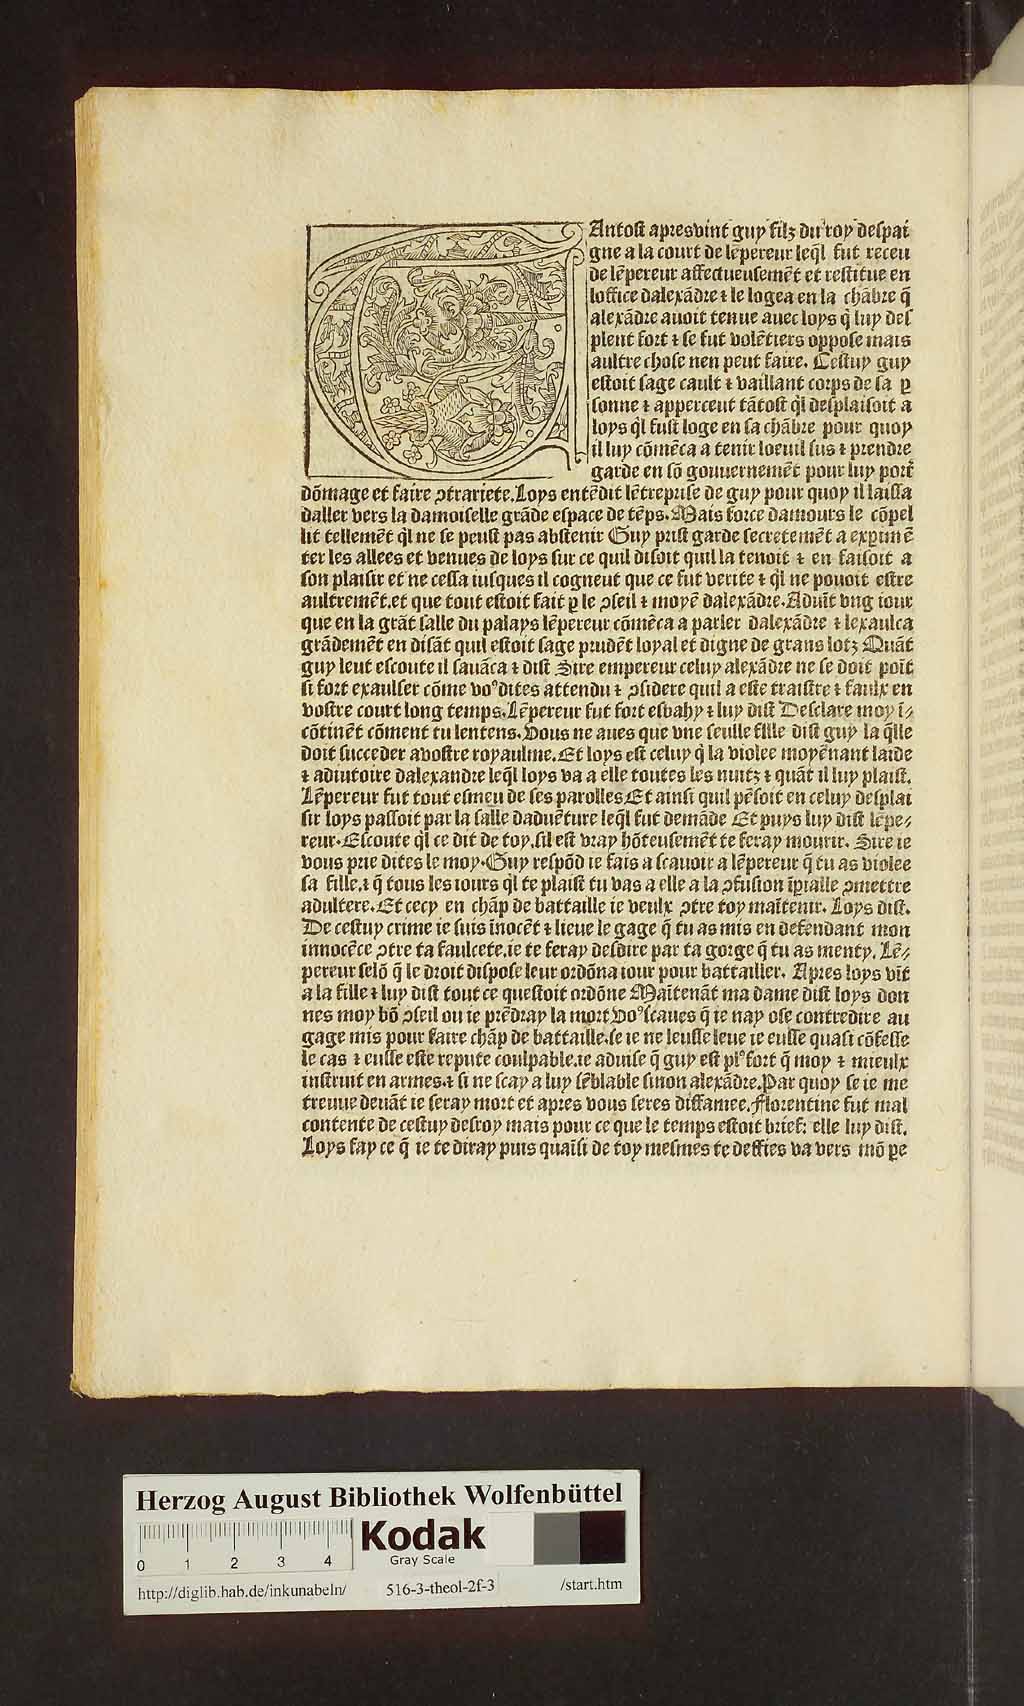 TAntost apresvint guy filz du roy despai
gne a la court de lēpereur leq̄l fut receu
de lēpereur affectueusemēt et restitue en
loffice dalexādre ⁊ le logea en la chābre q̄
alexādre auoit tenue auec loys q̄ luy des
pleut fort ⁊ se fut volētiers oppose mais
aultre chose nen peut faire. Cestuy guy
estoit sage cault ⁊ vaillant corps de sa ꝑ
sonne ⁊ apperceut tātost q̄l desplaisoit a
loys q̄l fust loge en sa chābre pour quoy
il luy cōmēca a tenir loeuil sus ⁊ prendre
garde en sō gouuernemēt pour luy port̄
dōmage et faire ꝯtrariete. Loys entēdit lētreprise de guy pour quoy il laissa
daller vers la damoiselle grāde espace de tēps. Mais force damours le cōpel
lit tellemēt q̄l ne se peust pas abstenir Guy prist garde secretemēt a exꝑimē
ter les allees et venues de loys sur ce quil disoit quil la tenoit ⁊ en faisoit a
son plaisir et ne cessa iusques il cogneut que ce fut verite ⁊ q̄l ne pouoit estre
aultremēt. et que tout estoit fait ꝑ le ꝯseil ⁊ moyē dalexādre. Aduīt vng iour
que en la grāt salle du palays lēpereur cōmēca a parler dalexādre ⁊ lexaulca
grādemēt en disāt quil estoit sage prudēt loyal et digne de grans lotz Quāt
guy leut escoute il sauāca ⁊ dist Sire empereur celuy alexādre ne se doit poīt
si fort exaulser cōme voꝰ dites attendu ⁊ ꝯsidere quil a este traistre ⁊ faulx en
vostre court long temps. Lēpereur fut fort esbahy ⁊ luy dist Desclare moy ī⸗
cōtinēt cōment tu lentens. Vous ne aues que vne seulle fille dist guy la q̄lle
doit succeder avostre royaulme. Et loys est celuy q̄ la violee moyēnant laide
⁊ adiutoire dalexandre leq̄l loys va a elle toutes les nuitz ⁊ quāt il luy plaist.
Lēpereur fut tout esmeu de ses parolles Et ainsi quil pēsoit en celuy desplai
sir loys passoit par la salle daduēture leq̄l fut demāde Et puys luy dist lēpe⸗
reur. Escoute q̄l ce dit de toy. sil est vray hōteusemēt te feray mourir. Sire ie
vous prie dites le moy. Guy respōd ie fais a scauoir a lēpereur q̄ tu as violee
sa fille. ⁊ q̄ tous les iours q̄l te plaist tu vas a elle a la ꝯfusion īꝑialle ꝯmettre
adultere. Et cecy en chāp de battaille ie veulx ꝯtre toy maītenir. Loys dist.
De cestuy crime ie suis inocēt ⁊ lieue le gage q̄ tu as mis en defendant mon
innocēce ꝯtre ta faulcete. ie te feray desdire par ta gorge q̄ tu as menty. Lē⸗
pereur selō q̄ le droit dispose leur ordōna iour pour battailler. Apres loys vīt
a la fille ⁊ luy dist tout ce questoit ordōne Maītenāt ma dame dist loys don
nes moy bō ꝯseil ou ie prēdray la mort voꝰ scaues q̄ ie nay ose contredire au
gage mis pour faire chāp de battaille. se ie ne leusse leue ie eusse quasi cōfesse
le cas ⁊ eusse este repute coulpable. ie aduise q̄ guy est plꝰ fort q̄ moy ⁊ mieulx
instruit en armes. ⁊ si ne scay a luy sēblable sinon alexādre. Par quoy se ie me
treuue deuāt ie seray mort et apres vous seres diffamee. Florentine fut mal
contente de cestuy desroy mais pour ce que le temps estoit brief: elle luy dist.
Loys fay ce q̄ ie te diray puis quaīsi de toy mesmes te deffies va vers mō ꝑe
Herzog August Bibliothek Wolfenbüttel
0 1 2 3 4
Kodak
Gray Scale
http://diglib.hab.de/inkunabeln/ 516-3-theol-2f-3 /start.htm